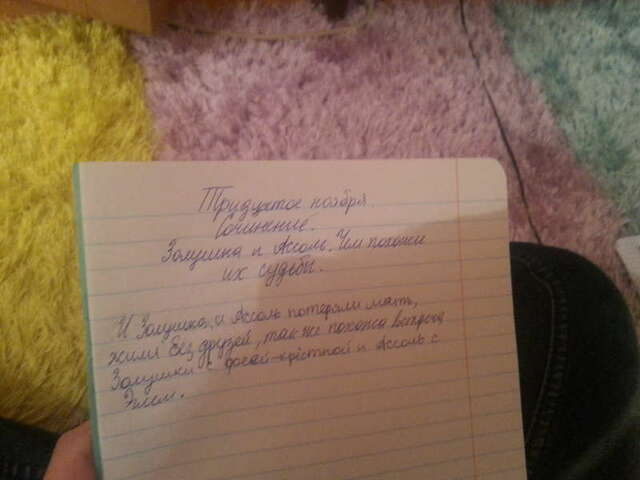 Тридцатое ноября.
Сочинение.
Золушка и Ассоль. Чем похожи
их судьбы.
И Золушка, и Ассоль потеряли мать,
жили без друзей, так же похожа встреча
Золушки с феей-крёстной и Ассоль с
Эглем.